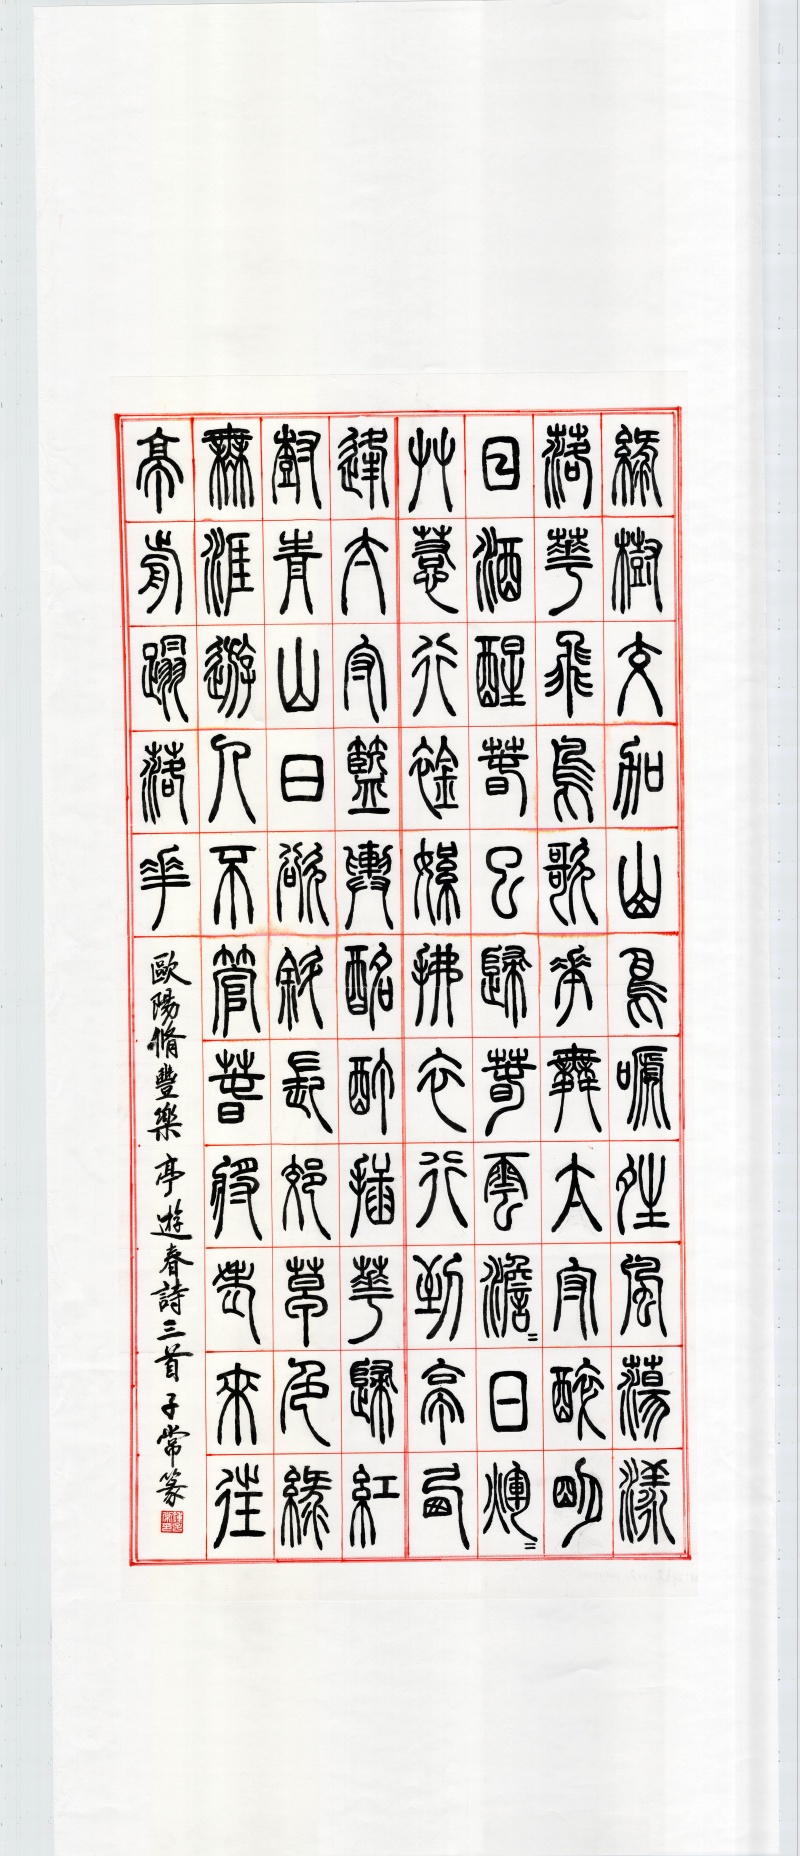 綠樹交加山鳥嗁夝風蕩漾
落華飛鳥歌花舞太守醉明
日酒醒春已歸春雲澹=日煇=
艸惹行襟絮拂衣行到亭西
逢太守籃輿酩酊插華歸紅
樹青山日欲斜長郊草色綠
無涯遊人不管春將老來往
亭歬蹋落花
歐陽脩豐樂亭遊春詩三首 子常篆